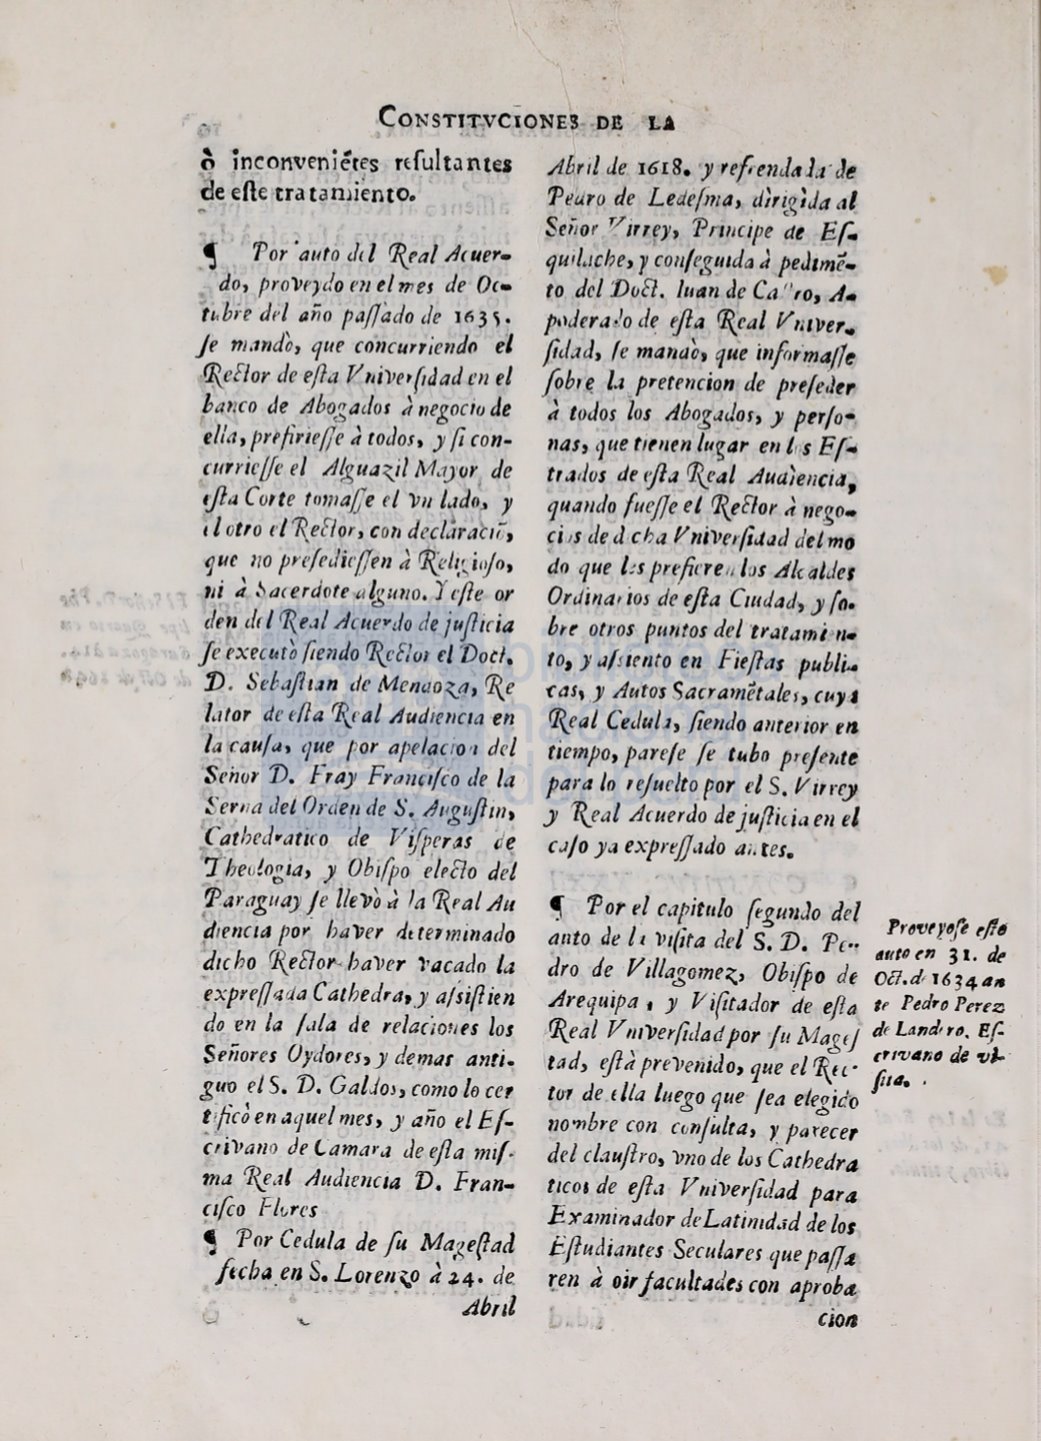 CONSTITVCIONES DE LA
ò inconveniẽtes resultantes
de este tratamiento.
¶ Por auto del Real Acuer-
do, proveydo en el mes de Oc-
tubre del año passado de 1635.
se mandò, que concurriendo el
Rector de esta Vniversidad en el
banco de Abogados à negocio de
ella, prefiriesse à todos, y si con-
curriesse el Alguazil Mayor de
esta Corte tomasse el vn lado, y
el otro el Rector, con declaraciõ,
que no presediessen à Religioso,
ni à Sacerdote alguno. Y este or
den del Real Acuerdo de justicia
se executò siendo Rector el Doct.
D. Sebastian de Mendoza, Re
lator de esta Real Audiencia en
la causa, que por apelacion del
Señor D. Fray Francisco de la
Serna del Orden de S. Augustin,
Cathedratico de Visperas de
Theologia, y Obispo electo del
Paraguay se llevò à la Real Au
diencia por haver determinado
dicho Rector haver vacado la
expressada Cathedra, y assistien
do en la sala de relaciones los
Señores Oydores, y demas anti-
guo el S. D. Galdos, como lo cer
tificò en aquel mes, y año el Es-
crivano de Camara de esta mis-
ma Real Audiencia D. Fran-
cisco Flores
¶ Por Cedula de su Magestad
fecha en S. Lorenzo à 24. de
Abril
Abril de 1618. y refrendada de
Pedro de Ledesma, dirigida al
Señor Virrey, Principe de Es-
quilache, y conseguida à pedimẽ-
to del Doct. Iuan de Castro, A-
poderado de esta Real Vniver-
sidad, se mandò, que informasse
sobre la pretencion de preseder
à todos los Abogados, y perso-
nas, que tienen lugar en los Es-
trados de esta Real Audiencia,
quando fuesse el Rector à nego-
cios de dicha Vniversidad del mo
do que les prefieren los Alcaldes
Ordinarios de esta Ciudad, y so-
bre otros puntos del tratamien-
to, y assiento en Fiestas publi-
cas, y Autos Sacramẽtales, cuya
Real Cedula, siendo anterior en
tiempo, parese se tubo presente
para lo resuelto por el S. Virrey
y Real Acuerdo de justicia en el
caso ya expressado antes.
¶ Por el capitulo segundo del
auto de la visita del S. D. Pe-
dro de Villagomez, Obispo de
Arequipa, y Visitador de esta
Real Vniversidad por su Mages
tad, està prevenido, que el Rec-
tor de ella luego que sea elegido
nombre con consulta, y parecer
del claustro, vno de los Cathedra
ticos de esta Vniversidad para
Examinador de Latinidad de los
Estudiantes Seculares que passa
ren à oir facultades con aproba
cion
Proveyose este
auto en 31. de
Oct. de 1634 an
te Pedro Perez
de Landero. Es-
crivano de vi-
sita.
biblioteca
nacional